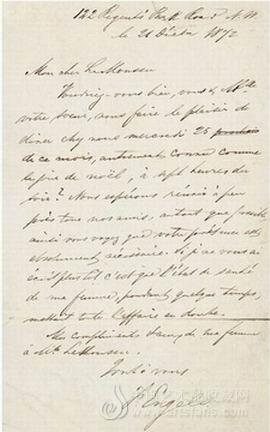 122 Regent's Park Road N.W.
le 21 Décbre 1872
Mon cher LeMoussu
Voudriez-vous bien, vous & Mlle
votre sœur, nous faire le plaisir de
diner chez nous mercredi 25
de ce mois, autrement connu comme
le jour de noël, à sept heures du
soir? Nous espérons réunir à peu
près tous nos amis, autant que possible
ainsi vous voyez que votre présence est
absolument nécessaire. Si je ne vous ai
écrit plus tôt c'est que l'état de santé
de ma femme, pendant quelque temps,
mettait toute l'affaire en doute.
Mes compliments & ceux de ma femme
à Mlle LeMoussu.
Tout à vous
F. Engels
artsfans.com